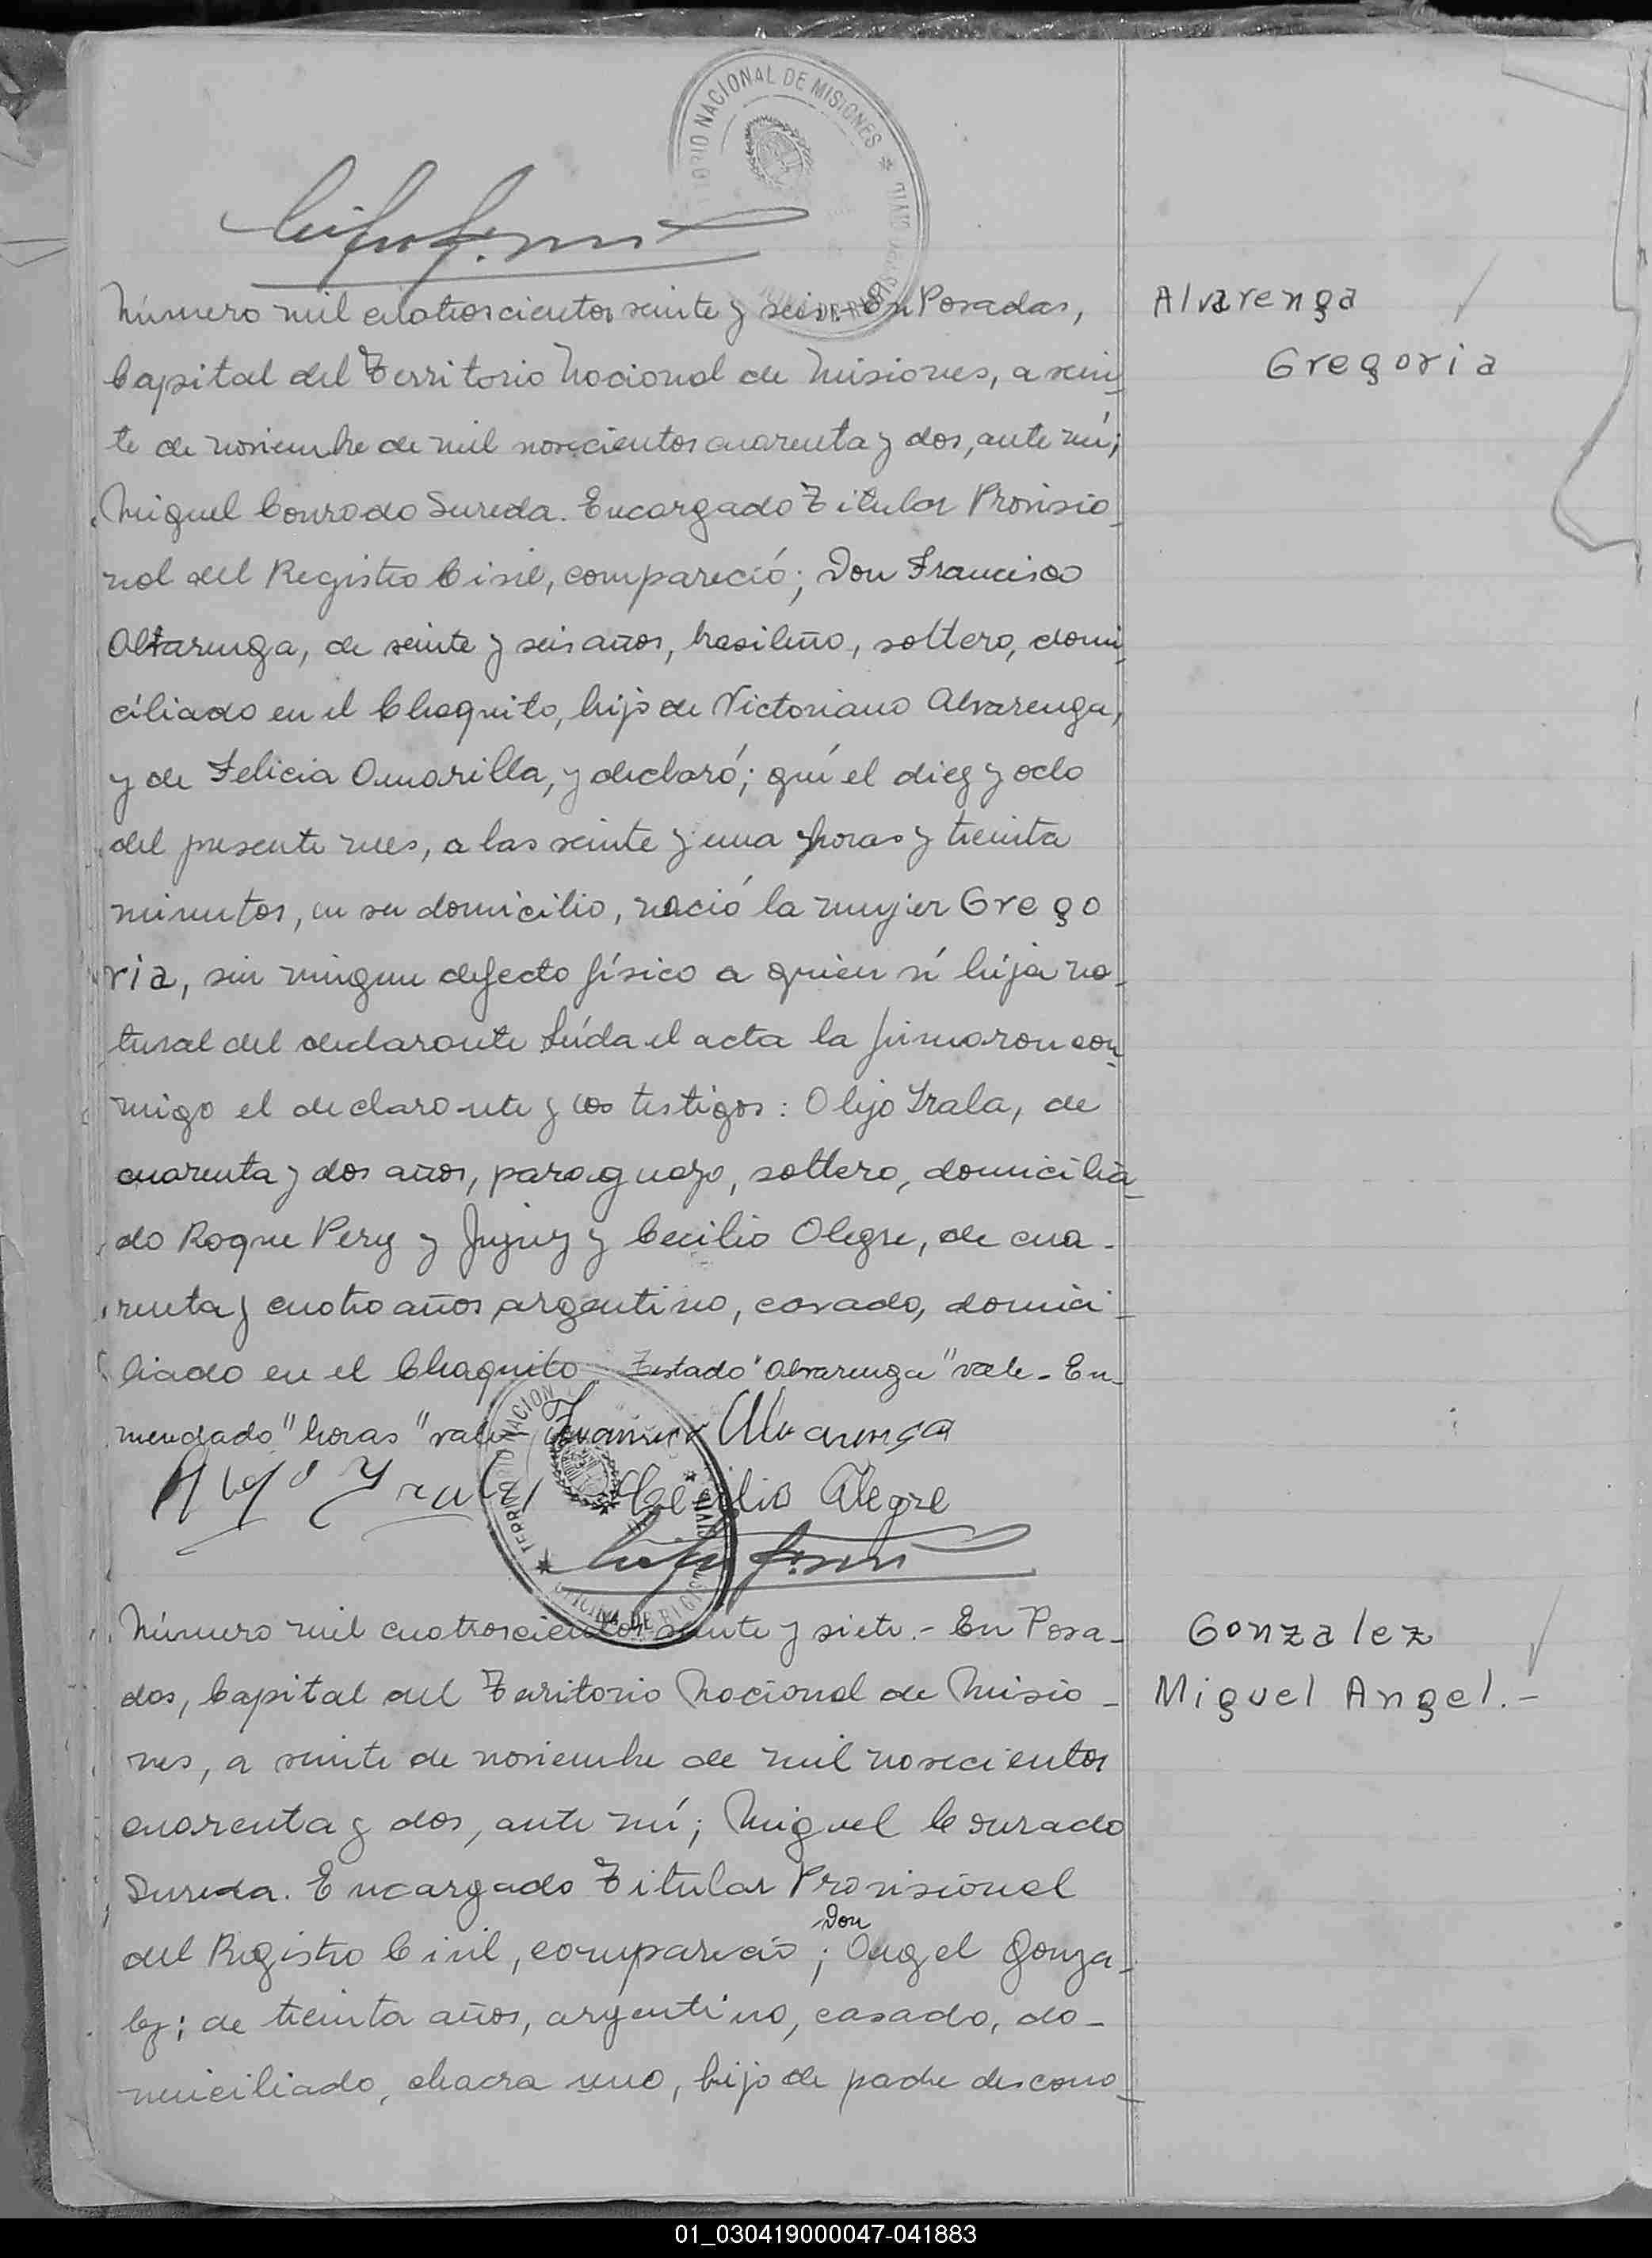 TERRITORIO NACIONAL DE MISIONES
Número mil cuatroscientos veinte y seis.- En Posadas,
Capital del Territorio Nacional de Misiones, a vein-
te de noviembre de mil novecientos cuarenta y dos, ante mí;
Miguel Conrado Sureda. Encargado Titular Provisio-
nal del Registro Civil, compareció; Don Francisco
Alvarenga, de veinte y seis años, brasileño, soltero, domi-
ciliado en el Chaquito, hijo de Victoriano Alvarenga,
y de Felicia Amarilla, y declaró; qué el diez y ocho
del presente mes, a las veinte y una horas y treinta
minutos, en su domicilio, nació la mujer Grego
ria, sin ningun defecto físico a quien ví hija na-
tural del declarante Leída el acta la firmaron con-
migo el declarante y los testigos: Alejo Irala, de
cuarenta y dos años, paraguayo, soltero, domicilia-
do Roque Perez y Jujuy y Cecilio Alegre, de cua-
renta y cuatro años argentino, casado, domici-
liado en el Chaquito Testado "Alvarenga" vale.- En-
mendado "horas" vale Francisco Alvarenga
Alejo Yrala Cecilio Alegre
Número mil cuatroscientos veinte y siete.- En Posa-
das, Capital del Territorio Nacional de Misio-
nes, a veinte de noviembre de mil novecientos
cuarenta y dos, ante mí; Miguel Conrado
Sureda. Encargado Titular Provisional
del Registro Civil, compareció; Don Angel Gonza-
lez; de treinta años, argentino, casado, do-
miciliado, chacra uno, hijo de padre descono-
Alvarenga
Gregoria
Gonzalez
Miguel Angel.-
01_030419000047-041883